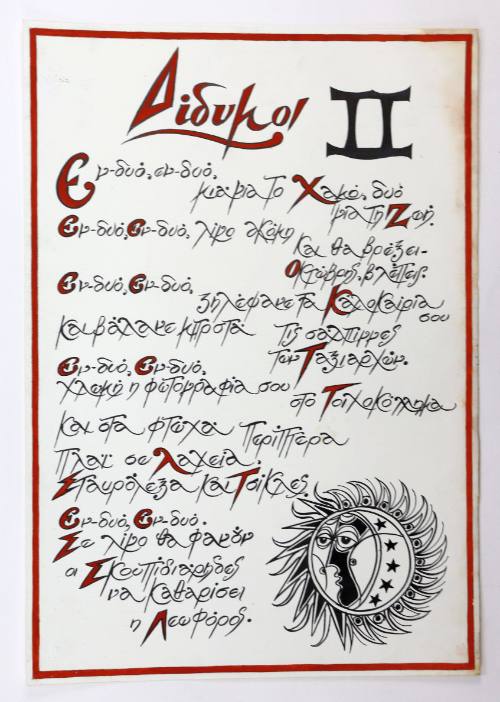 Δίδυμοι II
Εν-δυό, εν-δυό,
μια για το Χακί, δυό
για τη Ζωή.
Εν-δυό, Εν-δυό, λίγο ακόμη
και θα βρέξει-
Οκτώβρης, βλέπεις.
Εν-δυό, Εν-δυό.
ζηλέψανε τα Καλοκαίρια
σου
και βάλανε μπροστά τις σάλπιγγες
των Ταξιαρχών.
Εν-δυό, Εν-δυό.
χλωμή η φωτογραφία σου
στο Τοιχοκόλλημα
και στα φτωχά Περίπτερα
πλάι σε Λαχεία,
Σταυρόλεξα και Τσίχλες.
Εν-δυό, Εν-δυό.
Σε λίγο θα φανούν
οι Σκουπιδιάρηδες
να καθαρίσει
η Λεωφόρος.